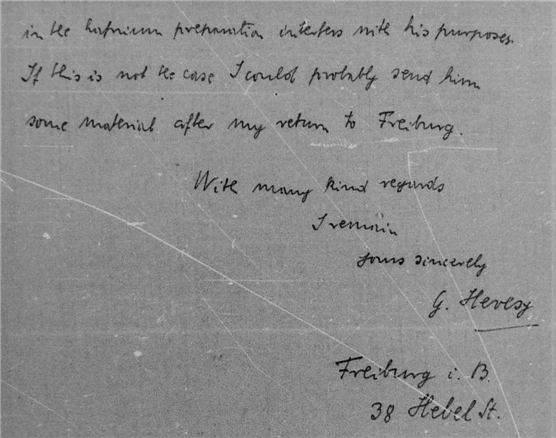 in the hafnium preparation interfers with his purposes.
If this is not the case I could probably send him
some material after my return to Freiburg.
With many kind regards
I remain
yours sincerely
G. Hevesy
Freiburg i. B.
38 Hebel St.